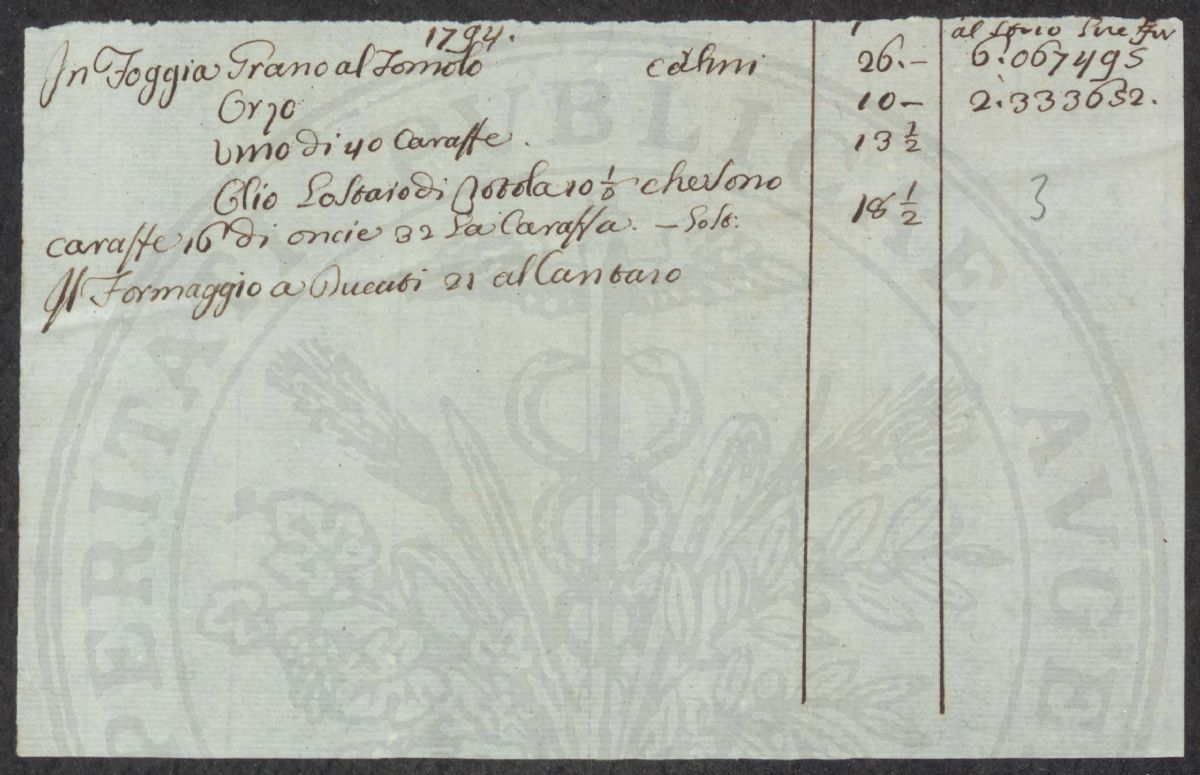 1794.
al staio Lire
In Foggia Grano al Tomolo carlini 26.– 6:067495
Orzo 10– 2:333652.
Vino di 40 Caraffe. 13 1/2
Olio Lo staio di Rotola 10 1/3 che sono
caraffe 16 di oncie 32 La Caraffa. – 18 1/2 3
Il Formaggio a Ducati 21 al Cantaro
PERITAT PUBLICAE AUGE